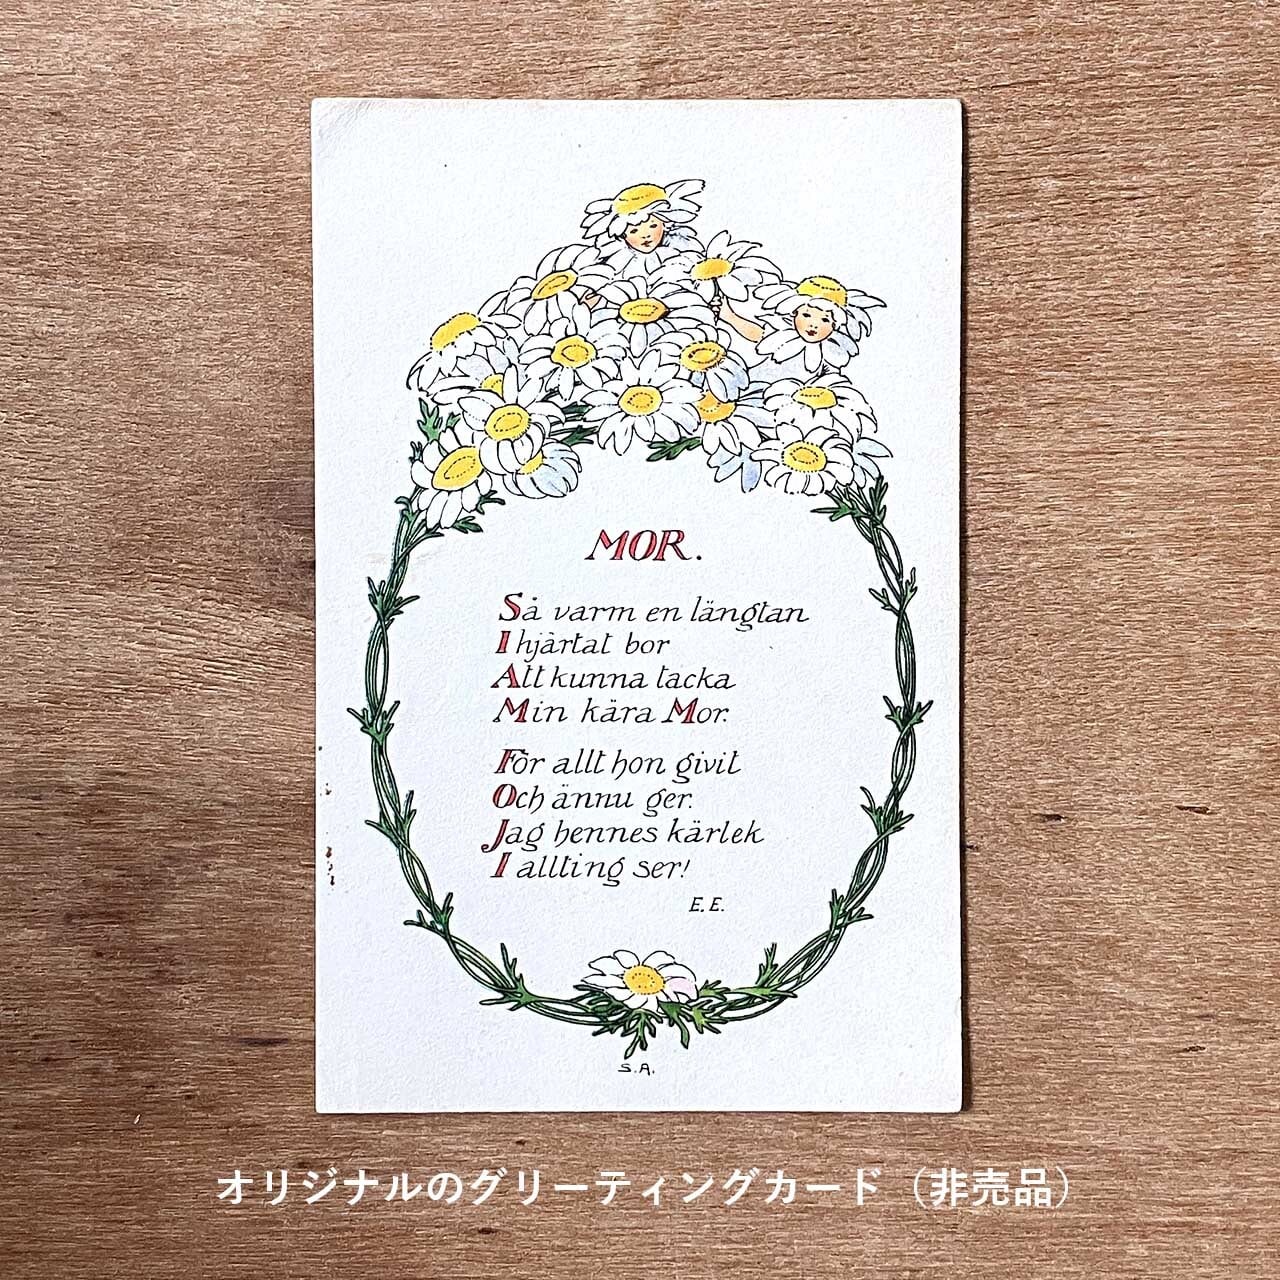 MOR.
Så varm en längtan
I hjärtat bor
Att kunna tacka
Min kära Mor.
För allt hon givit
Och ännu ger.
Jag hennes kärlek
I allting ser!
E.E.
S.A.
オリジナルのグリーティングカード（非売品）